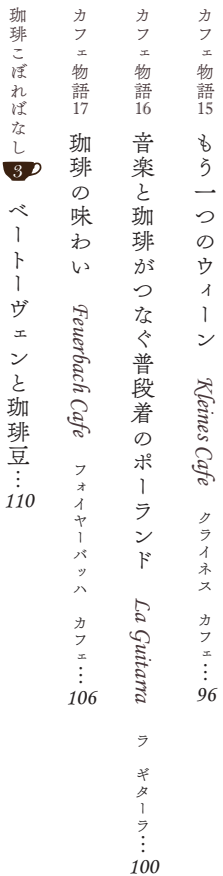 カフェ物語15 もう一つのウィーン Kleines Cafe クライネス カフェ…96
カフェ物語16 音楽と珈琲がつなぐ普段着のポーランド La Guitarra ラ ギターラ…100
カフェ物語17 珈琲の味わい Feuerbach Cafe フォイヤーバッハ カフェ…106
珈琲こぼればなし3 ベートーヴェンと珈琲豆…110